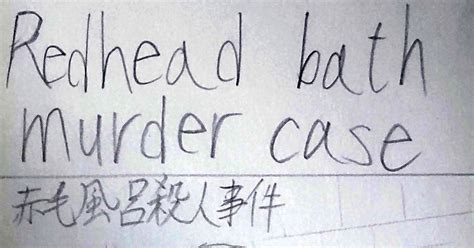 Redhead bath
murder case
赤毛風呂殺人事件